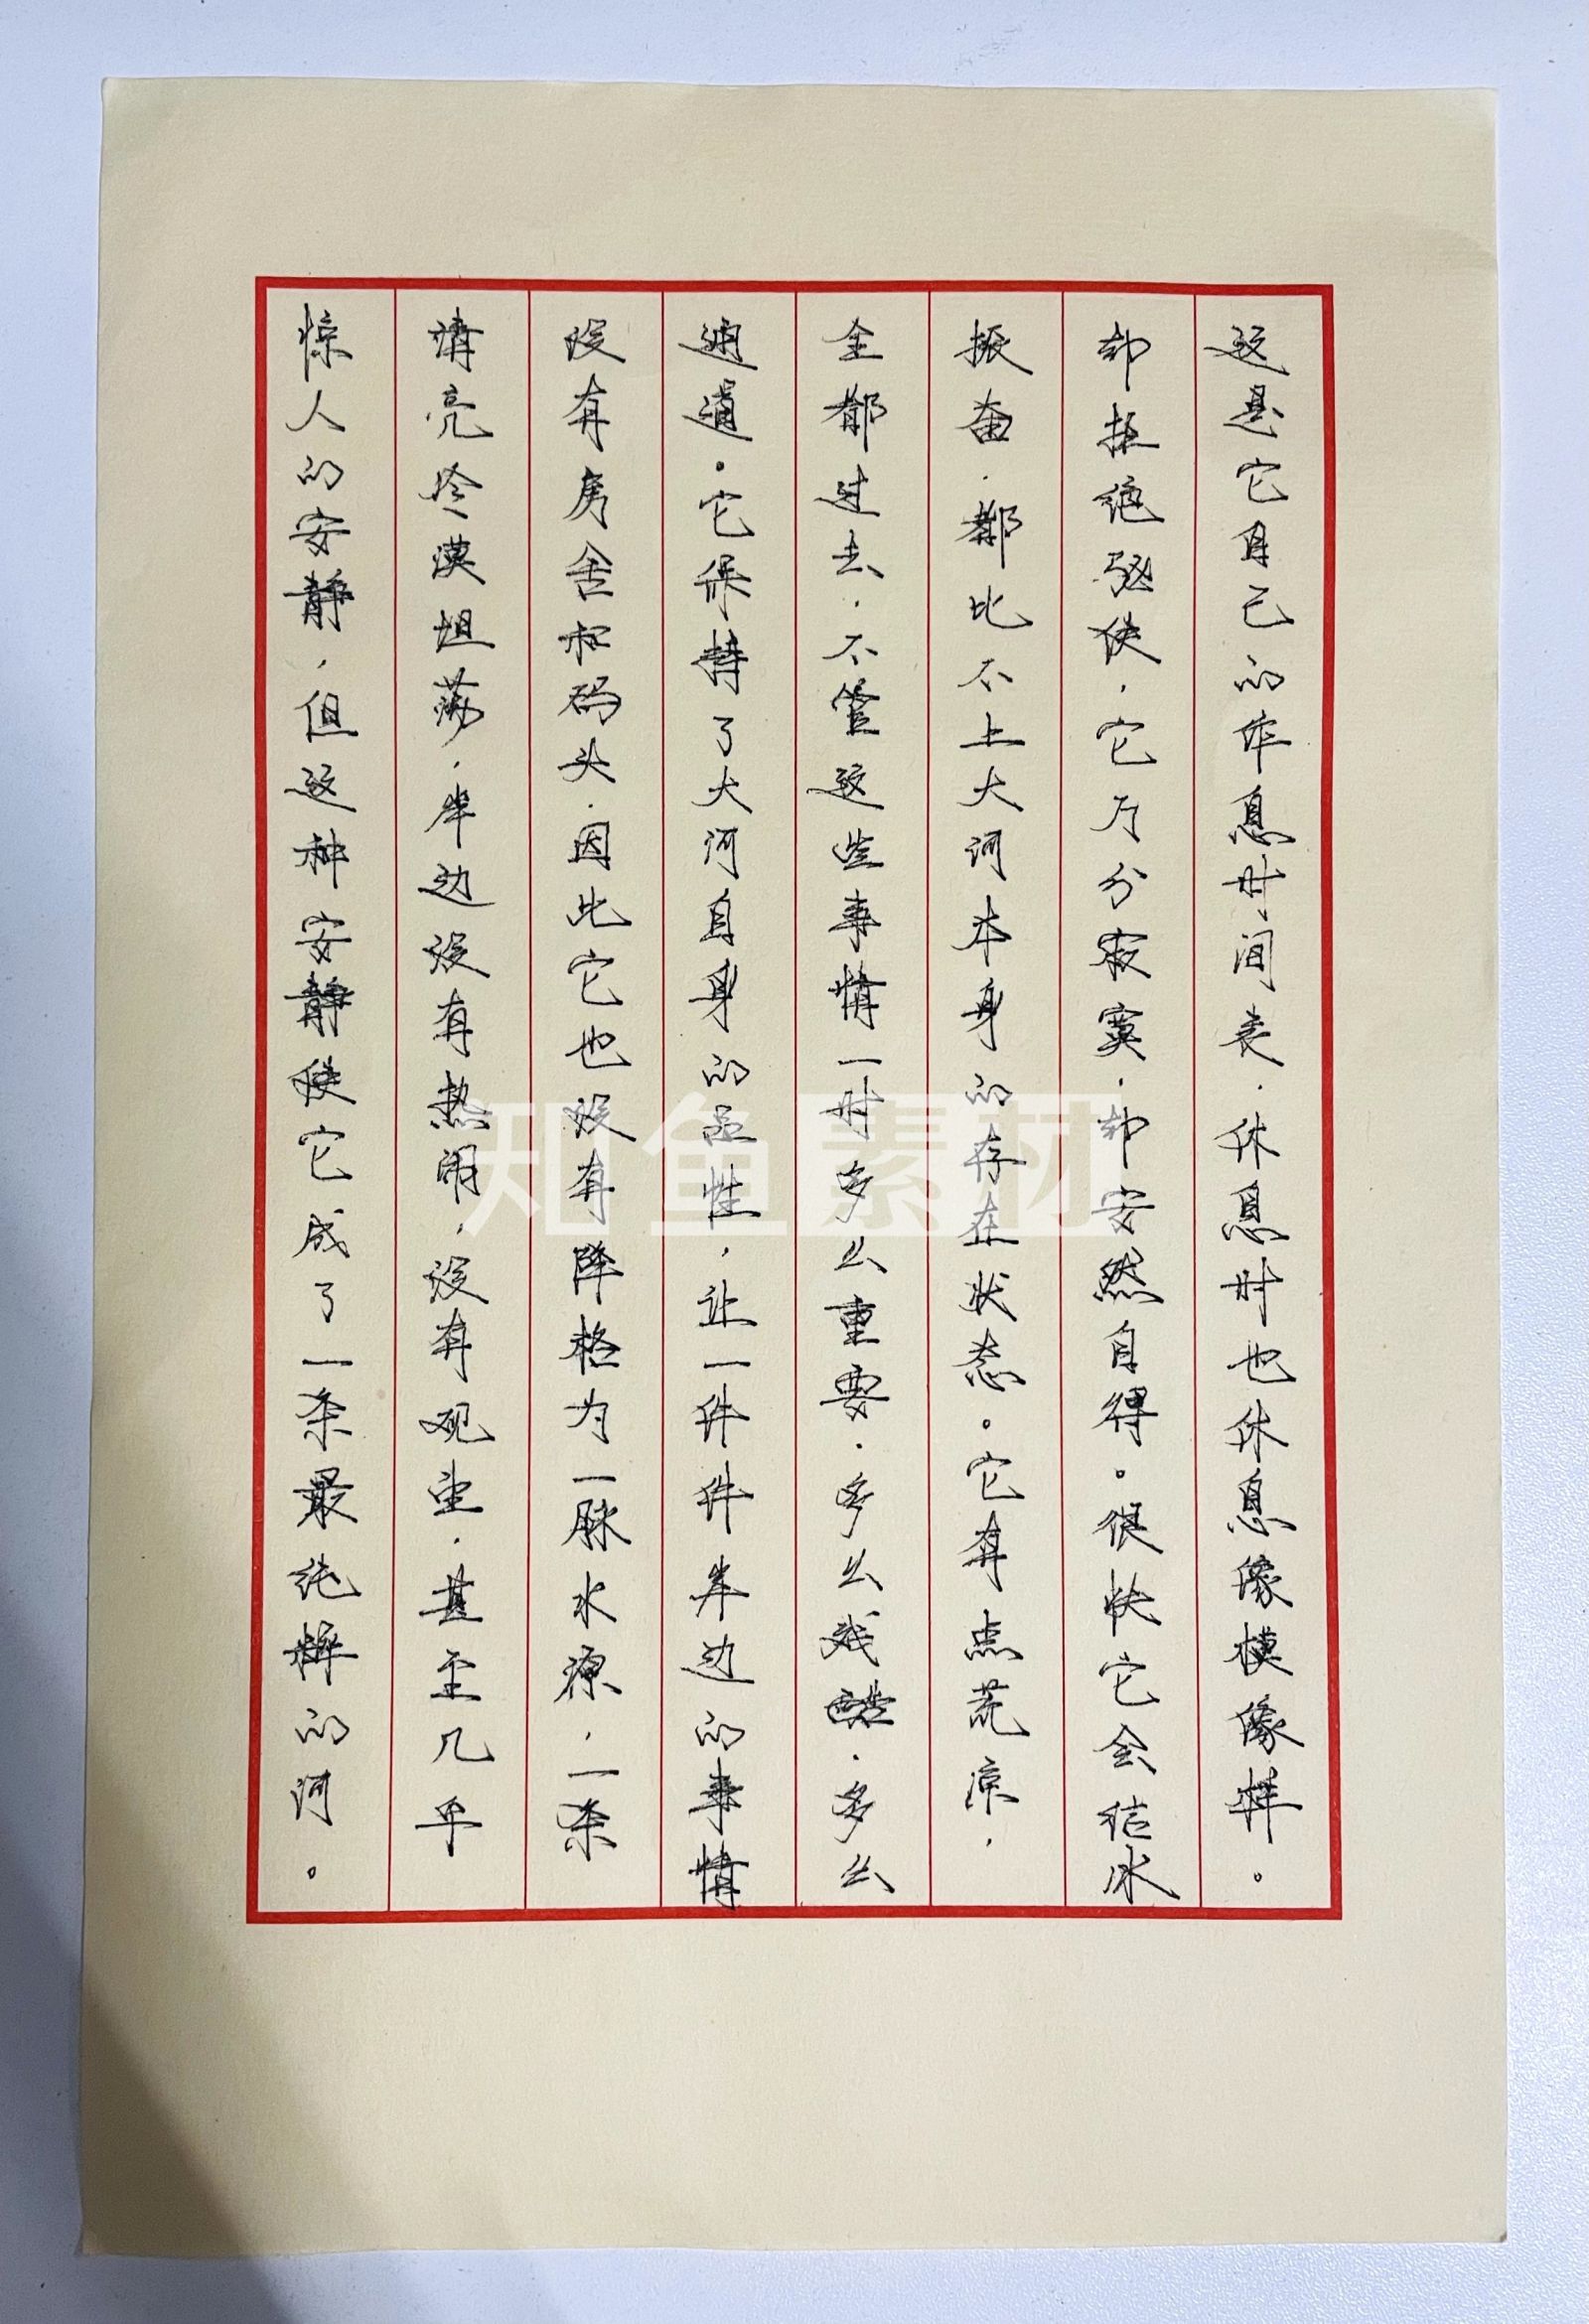 这是它自己的作息时间表.休息时也休息像模像样。
却拒绝驱使，它万分寂寞.却安然自得。很快它会结冰
振奋.都比不上大河本身的存在状态。它有点荒凉，
全都过去.不管这些事情一时多么重要.多么残酷.多么
通道。它保持了大河自身的品性，让一件件岸边的事情
没有房舍和码头.因此它也没有降格为一脉水源，一条
清亮冷漠坦荡，岸边没有热闹，没有观望.甚至几乎
惊人的安静，但这种安静使它成了一条最纯粹的河。
知鱼素材